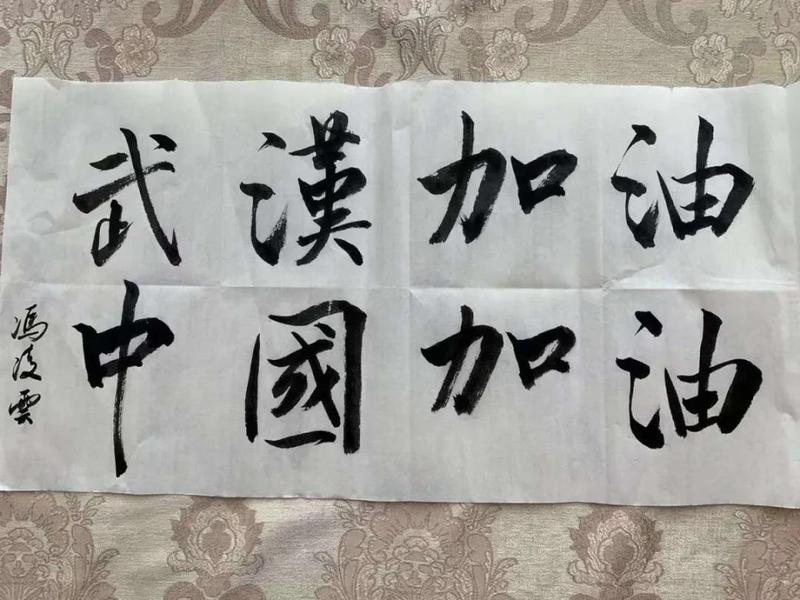 武漢加油
中國加油
馮凌雲